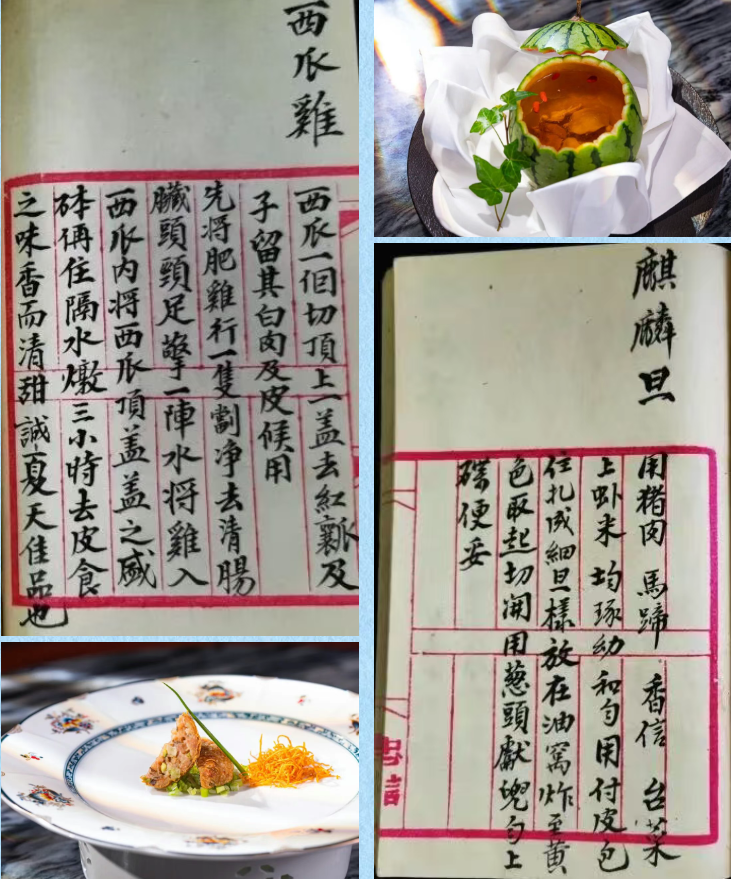 西瓜雞
西瓜一個切頂上一盖去紅瓤及
子留其白肉及皮候用
先將肥雞行一隻劏净去清腸
臟頭頸足擎一陣水將雞入
西瓜内將西瓜頂盖盖之盛
砵侢住隔水燉三小時去皮食
之味香而清甜誠夏天佳品也
麒麟旦
用猪肉 馬蹄 香信 台菜
上虾米 均琢幼和匀用付皮包
住扎成細旦樣放在油窩炸至黄
色取起切開用葱頭獻匀上
碟便妥